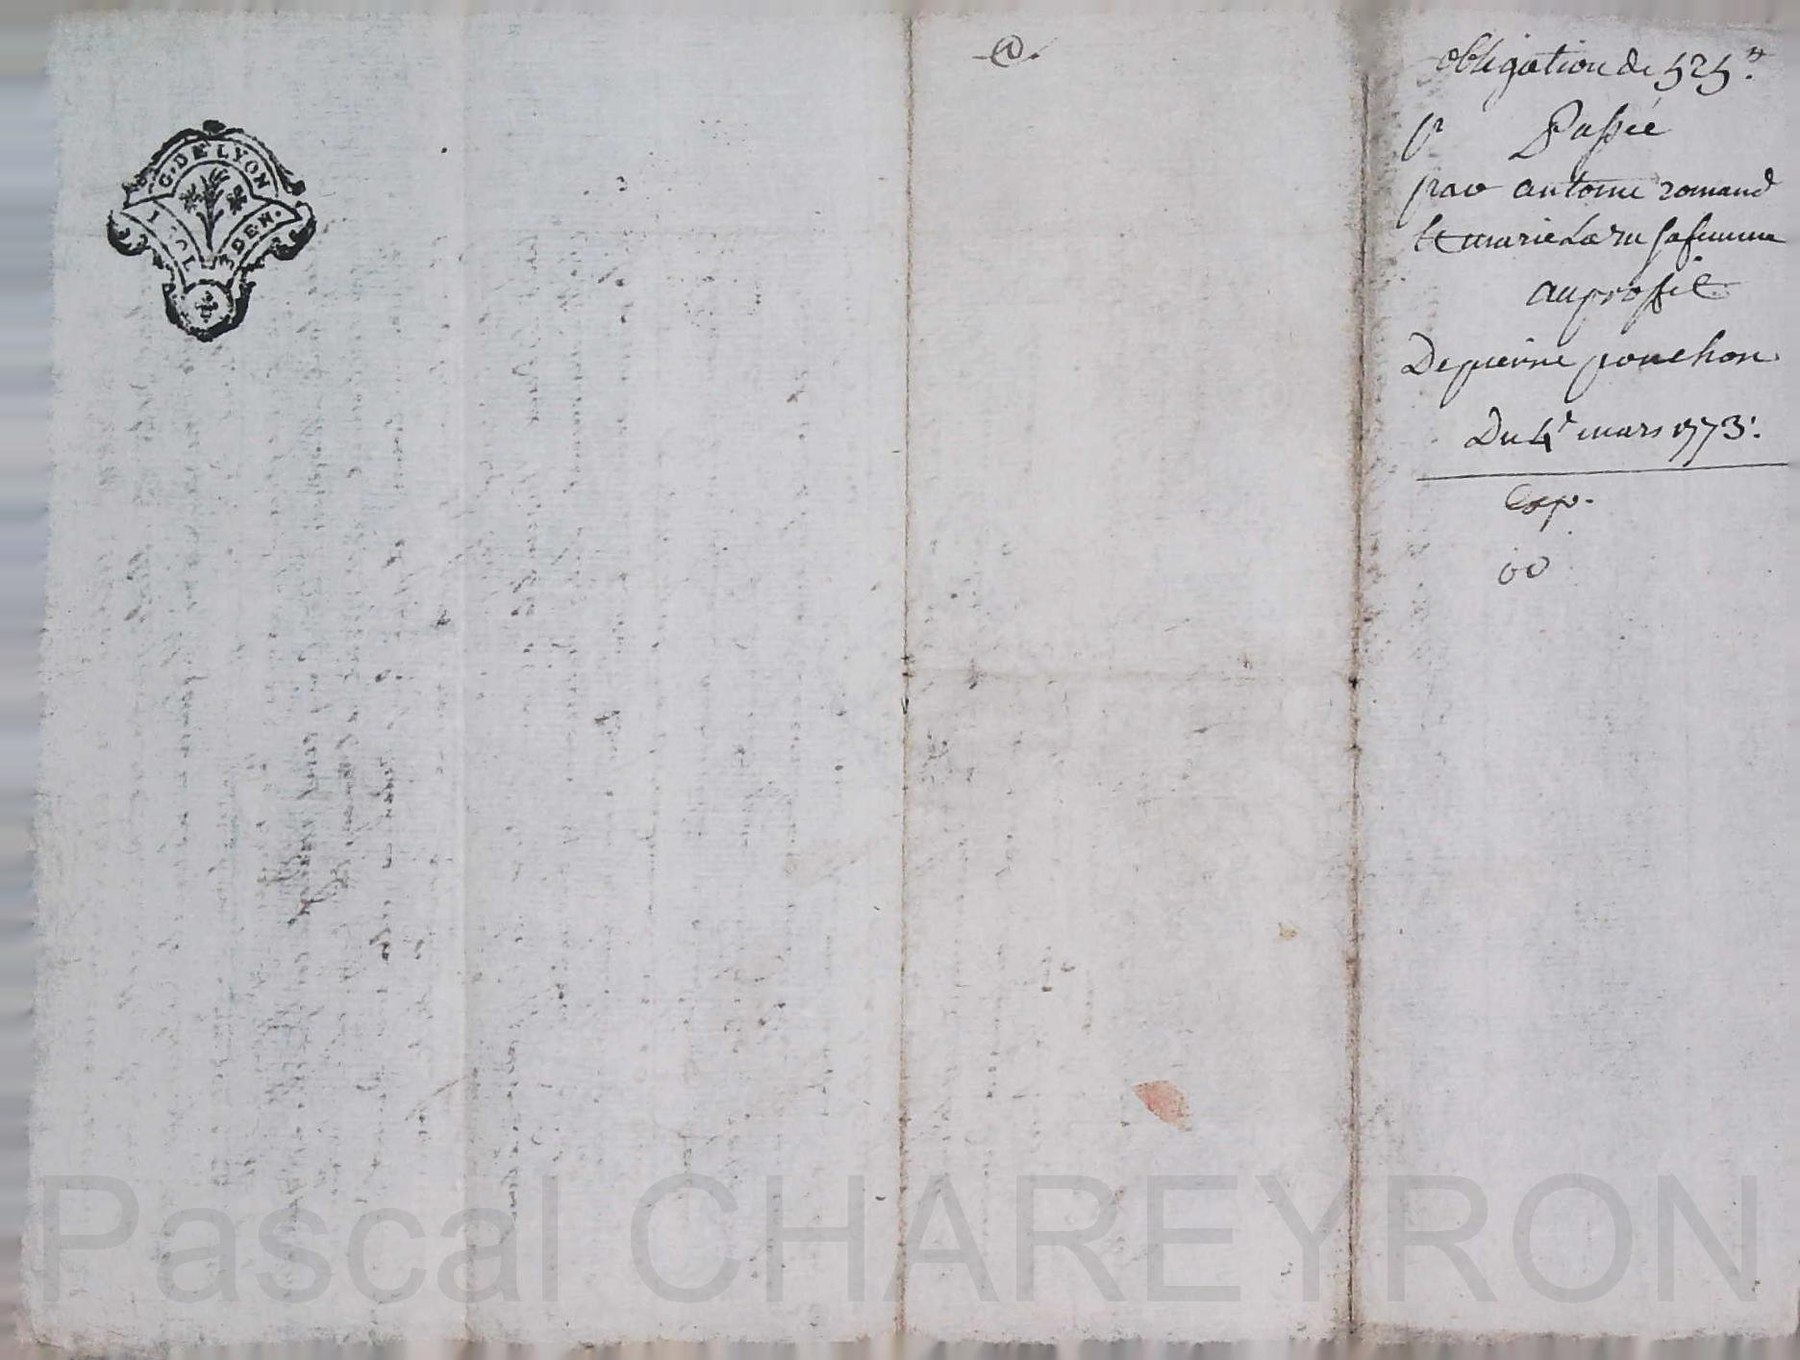 G. DE LYON
1 SOL
DEN.
@
obligation de 525ᵗᵗ.
Passée
par antoine romand
et marie La ru sa femme
au proffit
De pierre ponchon
Du 4ᵉ mars 1773.
Exp.
Pascal CHAREYRON